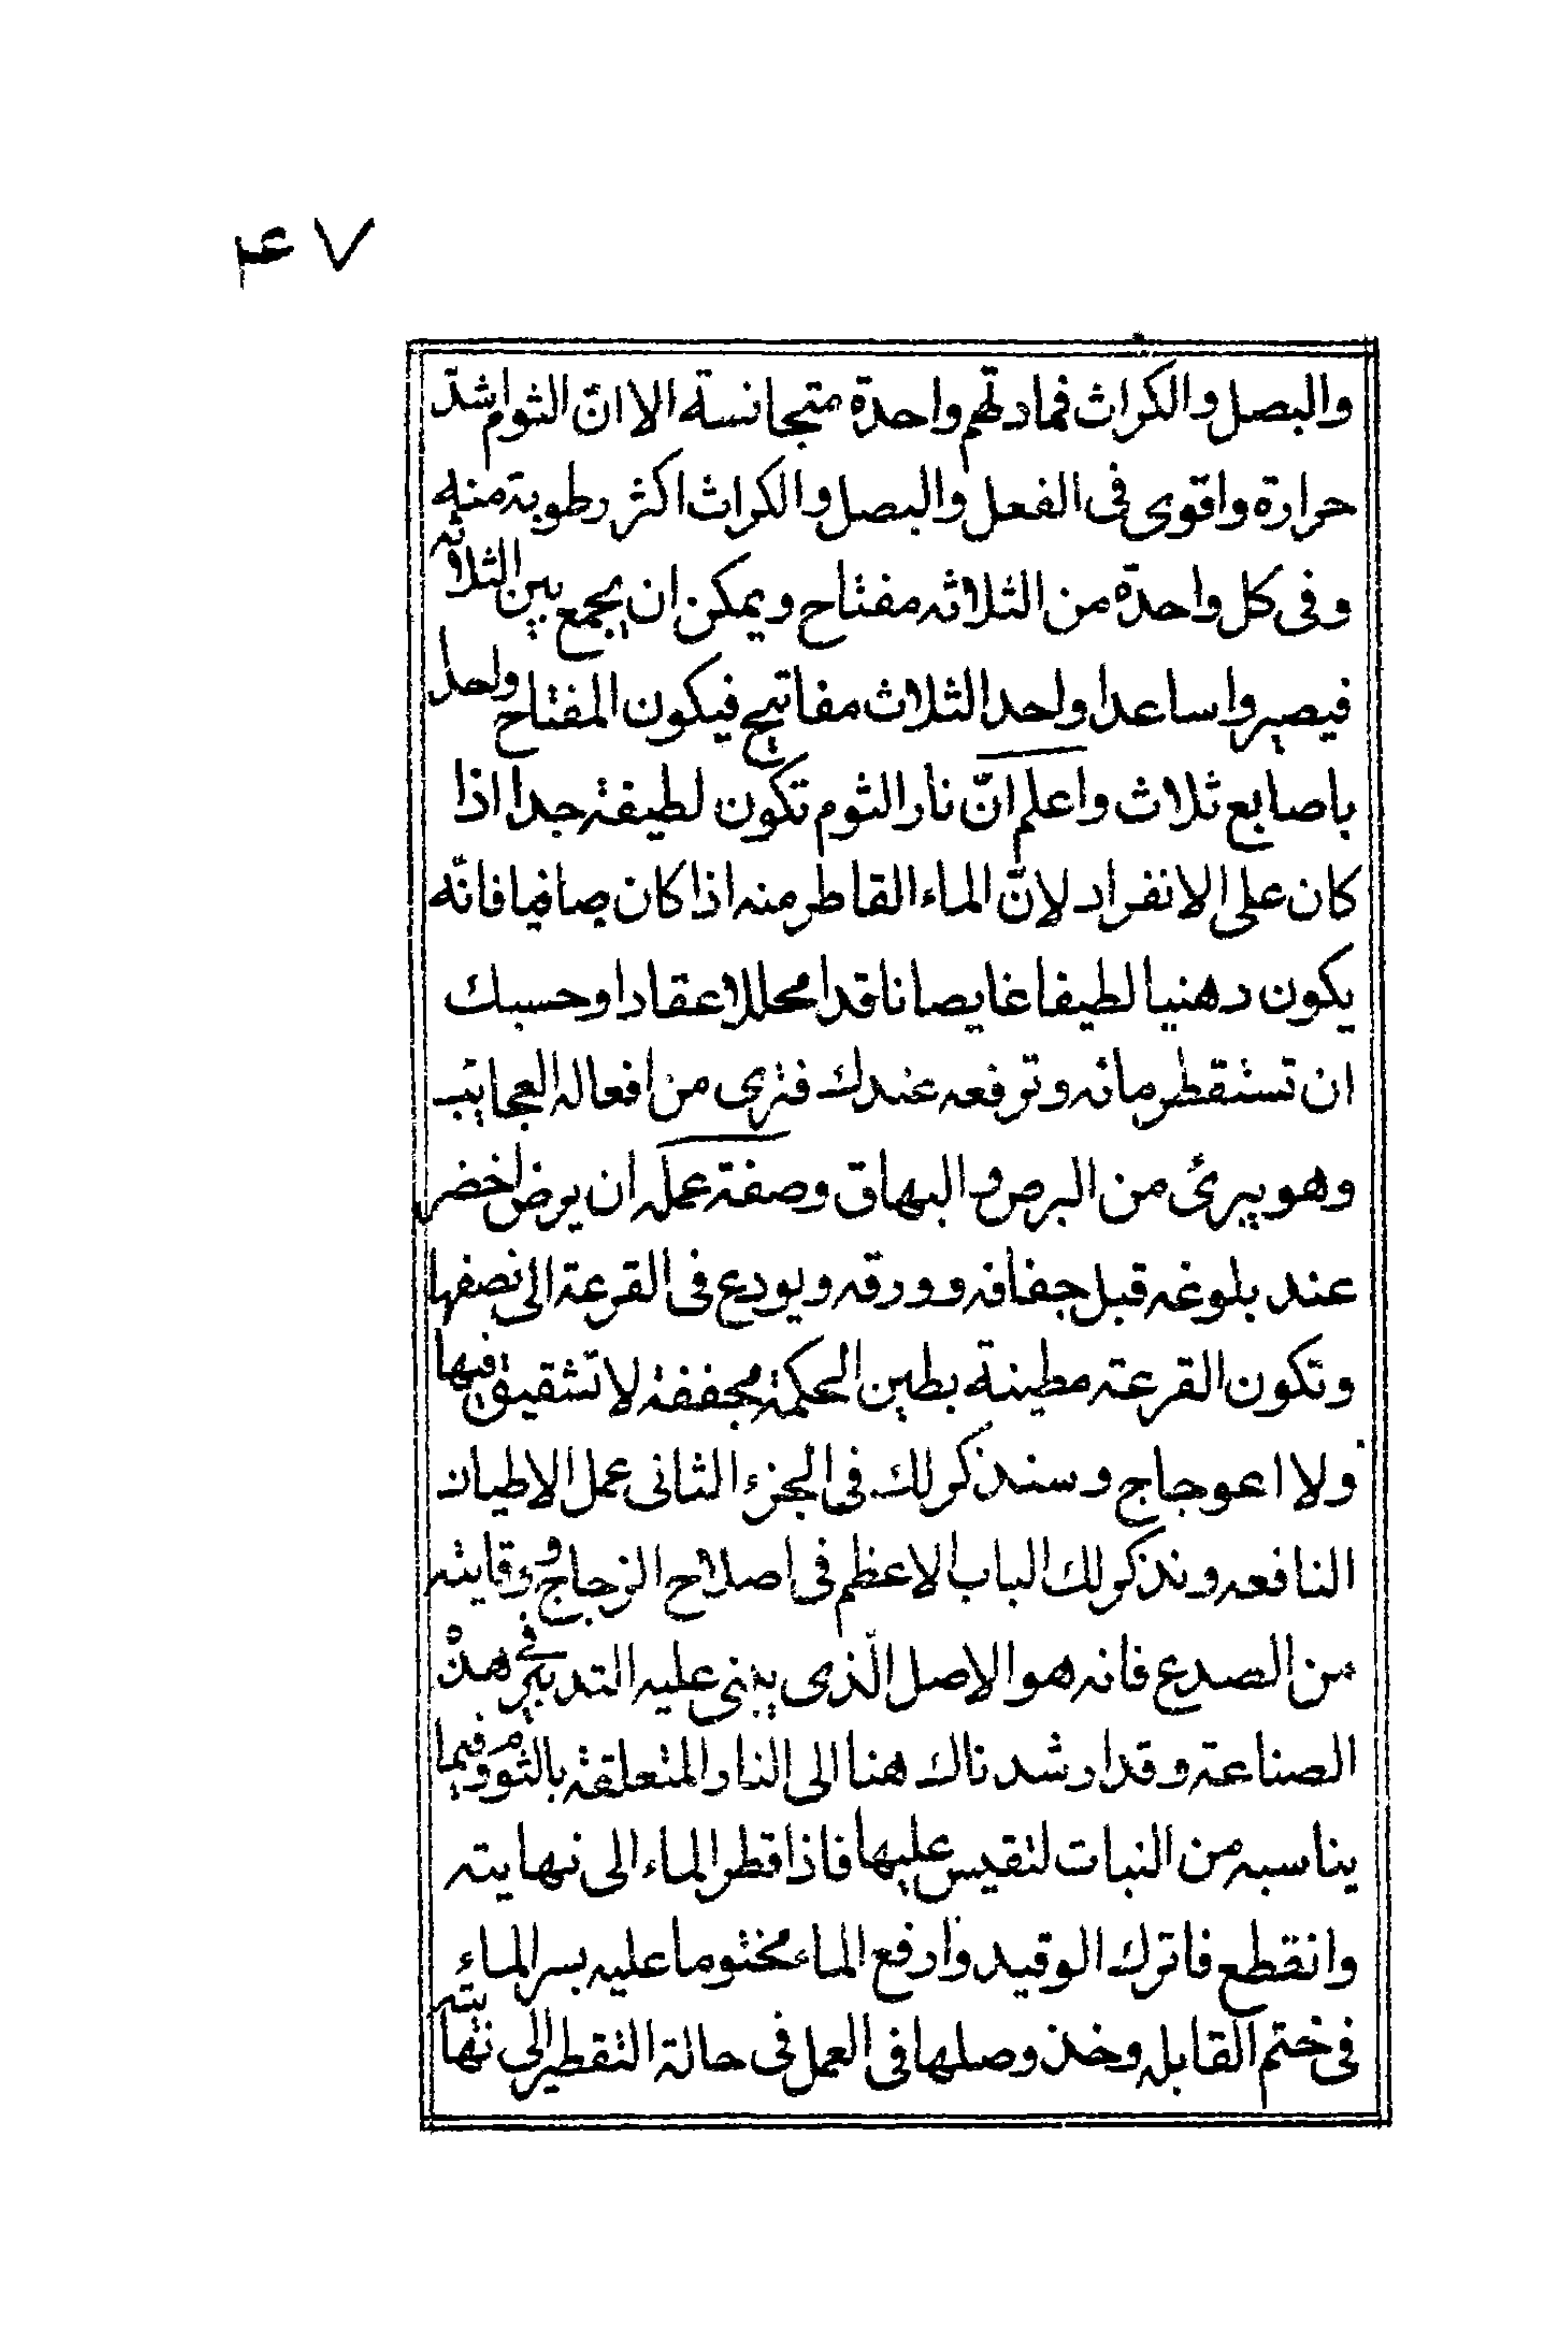 ٧ ع‍م
والبصل والكراث فمادتهم واحدة متجانسة الا انّ الثوم اشدّ
حرارة واقوى فى الفعل والبصل والكراث اكثر رطوبة منه
وفى كل واحدة من الثلاثه مفتاح ويمكن ان يجمع بين الثلاثه
فيصيروا ساعدا واحد الثلاث مفاتيح فيكون المفتاح واحدا
باصابع ثلاث واعلم انّ نار الثوم تكون لطيفة جدا اذا
كان على الانفراد لانّ الماء القاطر منه اذا كان صافيا فانّه
يكون دهنيا لطيفا غايصا ناقدا محللا عقادا وحسبك
ان تستقطر مائه وترفعه عندك فترى من افعاله العجايب
وهو يبرئ من البرص والبهاق وصفة عمله ان يرض اخضر
عند بلوغه قبل جفافه وورقه ويودع فى القرعة الى نصفها
وتكون القرعة مطينة بطين الحكمة مجففة لا تشقيق فيها
ولا اعوجاج وسنذكر لك فى الجزء الثانى عمل الاطيان
النافعه ونذكر لك الباب الاعظم فى اصلاح الزجاج ووقايته
من الصدع فانه هو الاصل الّذى يبنى عليه التدبير فى هذه
الصناعة وقد ارشدناك هنا الى النار المتعلقة بالثوم وفيما
يناسبه من النبات لتقيس عليها فاذا قطر الماء الى نهايته
وانقطع فاترك الوقيد وارفع الماء مختوما عليه بسر الماء
فى ختم القابله وخذ وصلها فى العمل فى حالة التقطير الى نهايته